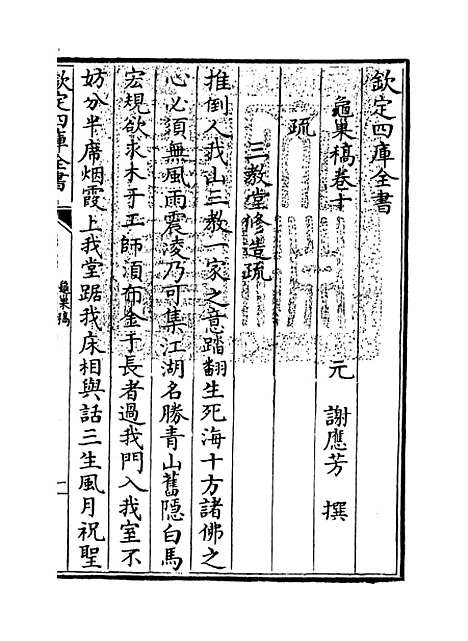 欽定四庫全書
龜巢稿卷十
元 謝應芳 撰
疏
三教堂修造疏
推倒人我山三教一家之意踏翻生死海十方諸佛之
心必須無風雨震淩乃可集江湖名勝青山舊隱白馬
宏規欲求木于工師須布金于長者過我門入我室不
妨分半席烟霞上我堂踞我床相與話三生風月祝聖
欽定四庫全書
龜巢稿
一